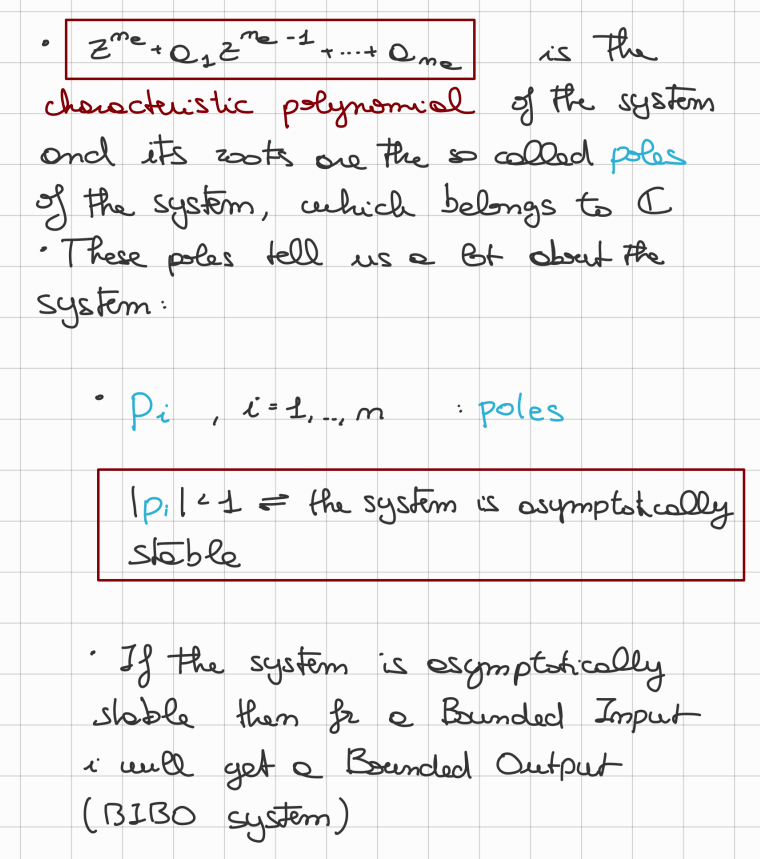 • z^{n_a} + a_1 z^{n_a - 1} + ... + a_{n_a} is the
characteristic polynomial of the system
and its roots are the so called poles
of the system, which belongs to ℂ
• These poles tell us a lot about the
system:
• p_i , i = 1, .., n : poles
|p_i| < 1 ⇌ the system is asymptotically
stable
• If the system is asymptotically
stable then for a Bounded Input
i will get a Bounded Output
(BIBO system)